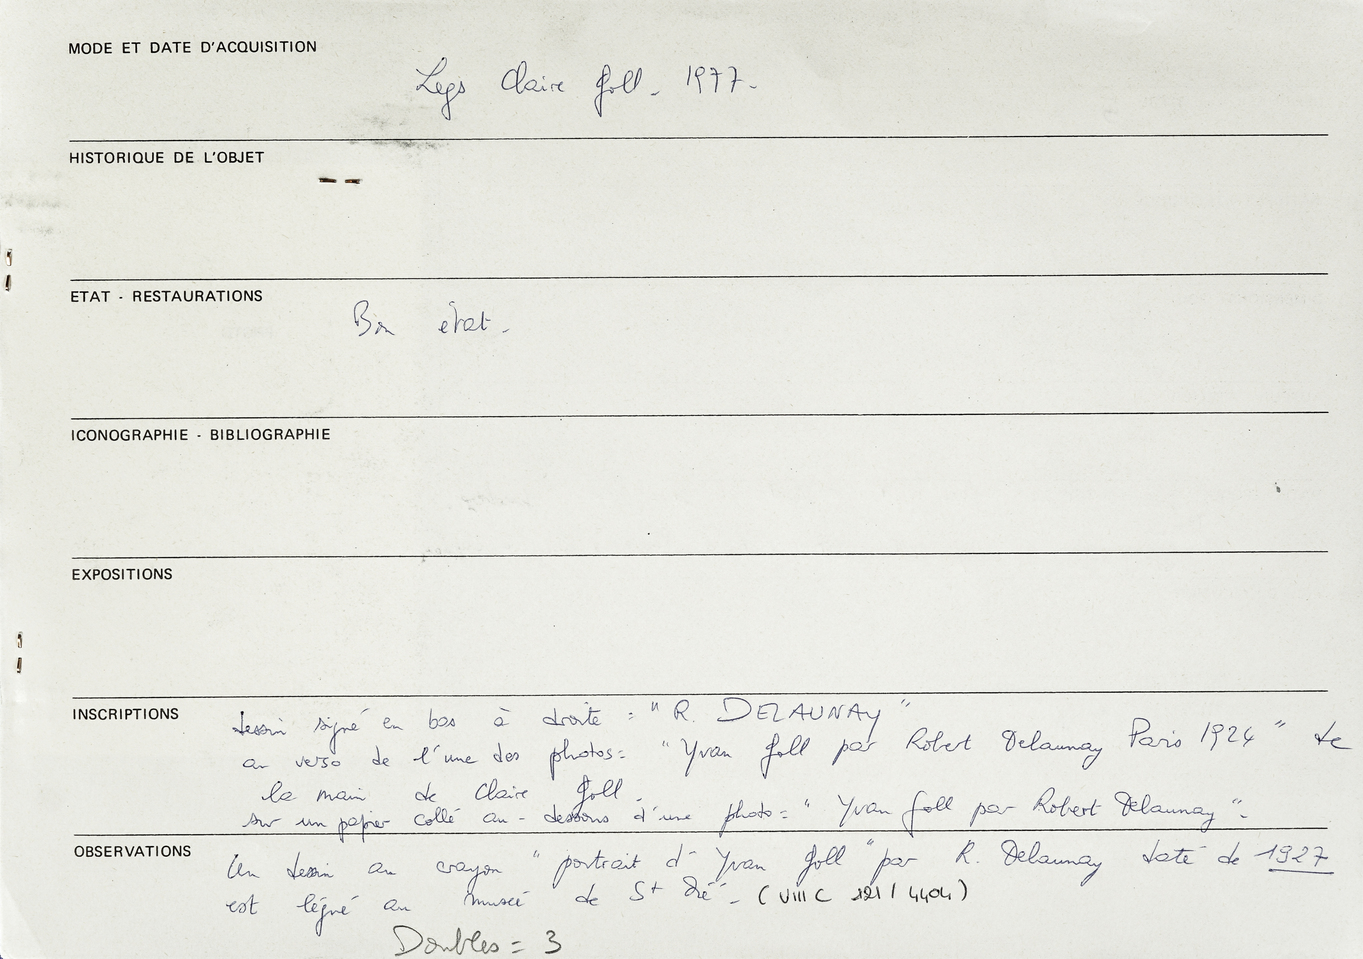 MODE ET DATE D'ACQUISITION
Legs Claire Goll - 1977 -
HISTORIQUE DE L'OBJET
ETAT - RESTAURATIONS
Bon état -
ICONOGRAPHIE - BIBLIOGRAPHIE
EXPOSITIONS
INSCRIPTIONS
dessin signé en bas à droite : "R. DELAUNAY"
au verso de l'une des photos : "Yvan Goll par Robert Delaunay Paris 1924" de
la main de Claire Goll.
sur un papier collé au-dessous d'une photo : "Yvan Goll par Robert Delaunay".
OBSERVATIONS
Un dessin au crayon "portrait d'Yvan Goll" par R. Delaunay daté de 1927
est légué au musée de St Dié - (VIII C 121 / 4404)
Doubles = 3